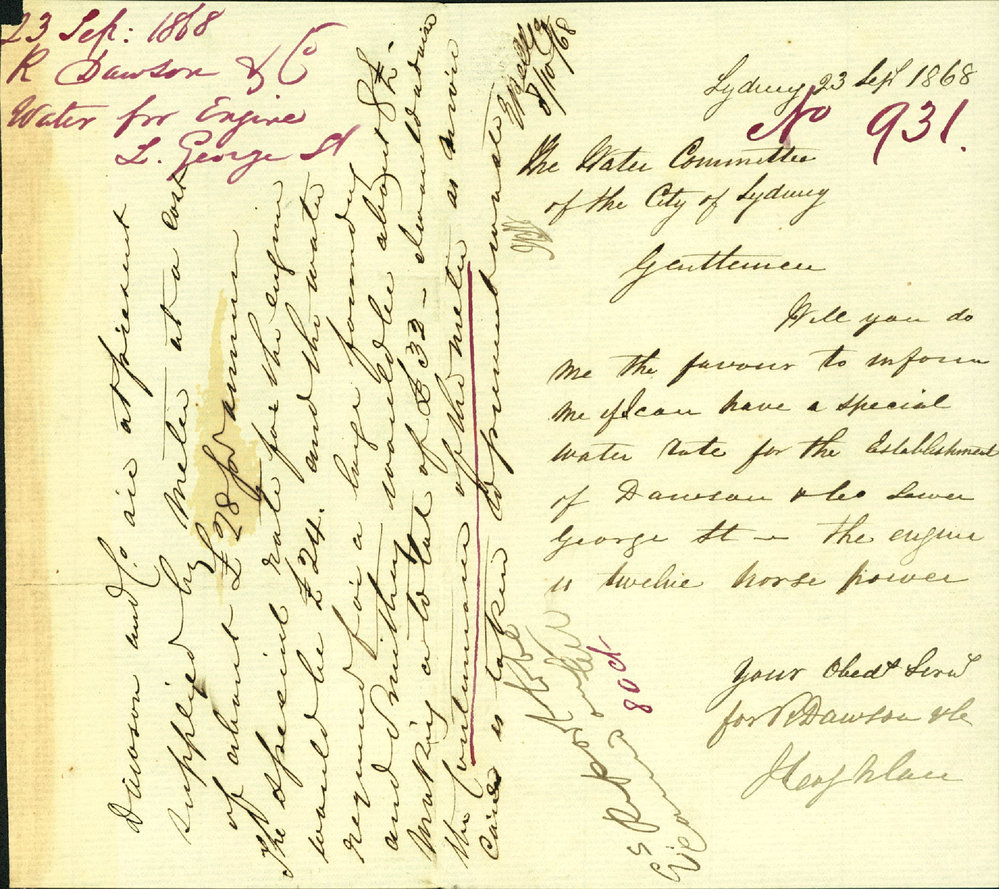 23 Sep: 1868
R Dawson & Co
Water for Engine
L. George St
Sydney 23 Sept 1868
No 931.
The Water Committee
of the City of Sydney
Gentlemen
Will you do
me the favour to inform
me if I can have a special
water rate for the Establishment
of Dawson & Co Lower
George St – the engine
is twelve horse power
Your Obedt Servt
for R Dawson & Co
Dawson and Co. are at present
supplied by meter at a cost
of about £28 per annum
The special rate for the engine
would be £24. and the water
required for a large foundry
and smithy would be about 8£-
Making a total of £32 – I would advise
the continuance of the meter as more
care is taken to prevent waste
5/10/68
8 Oct